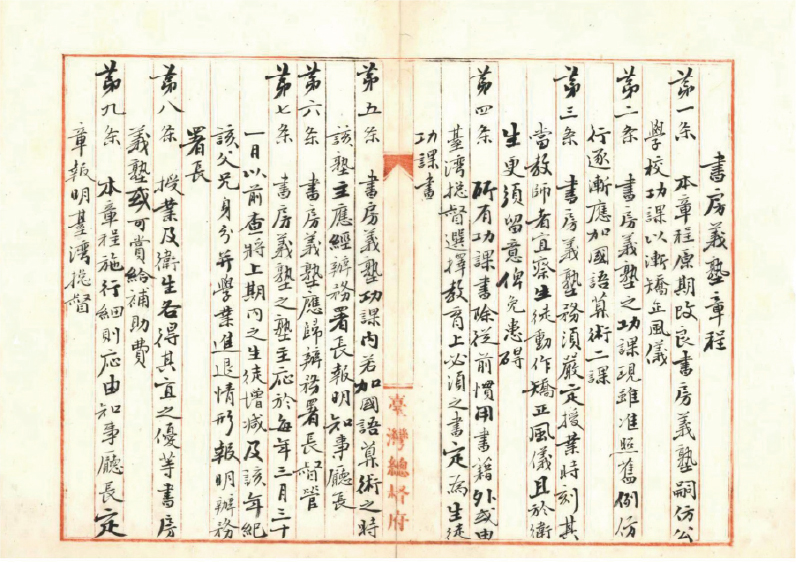 書房義塾章程
第一条　本章程原期改良書房義塾嗣仿公
學校功課以漸矯正風儀
第二条　書房義塾之功課現雖准照舊例仿
行逐漸應加國語算術二課
第三条　書房義塾務須嚴定授業時刻其
當教師者宜察生徒動作矯正風儀且於衛
生更須留意俾免患碍
第四条　所有功課書除從前慣用書籍外或由
臺灣總督選擇教育上必須之書定為生徒
功課書
臺灣總督府
第五条　書房義塾功課內若加國語算術之時
該塾主應經辦務署長報明知事廳長
第六条　書房義塾應歸辦務署長督管
第七条　書房義塾之塾主应於每年三月三十
一日以前查將上期內之生徒增減及該年紀
該父兄身分并學業進退情形報明辦務
署長
第八条　授業及衛生各得其宜之優等書房
義塾或可賞給補助費
第九条　本章程施行細則应由知事廳長定
章報明臺湾總督